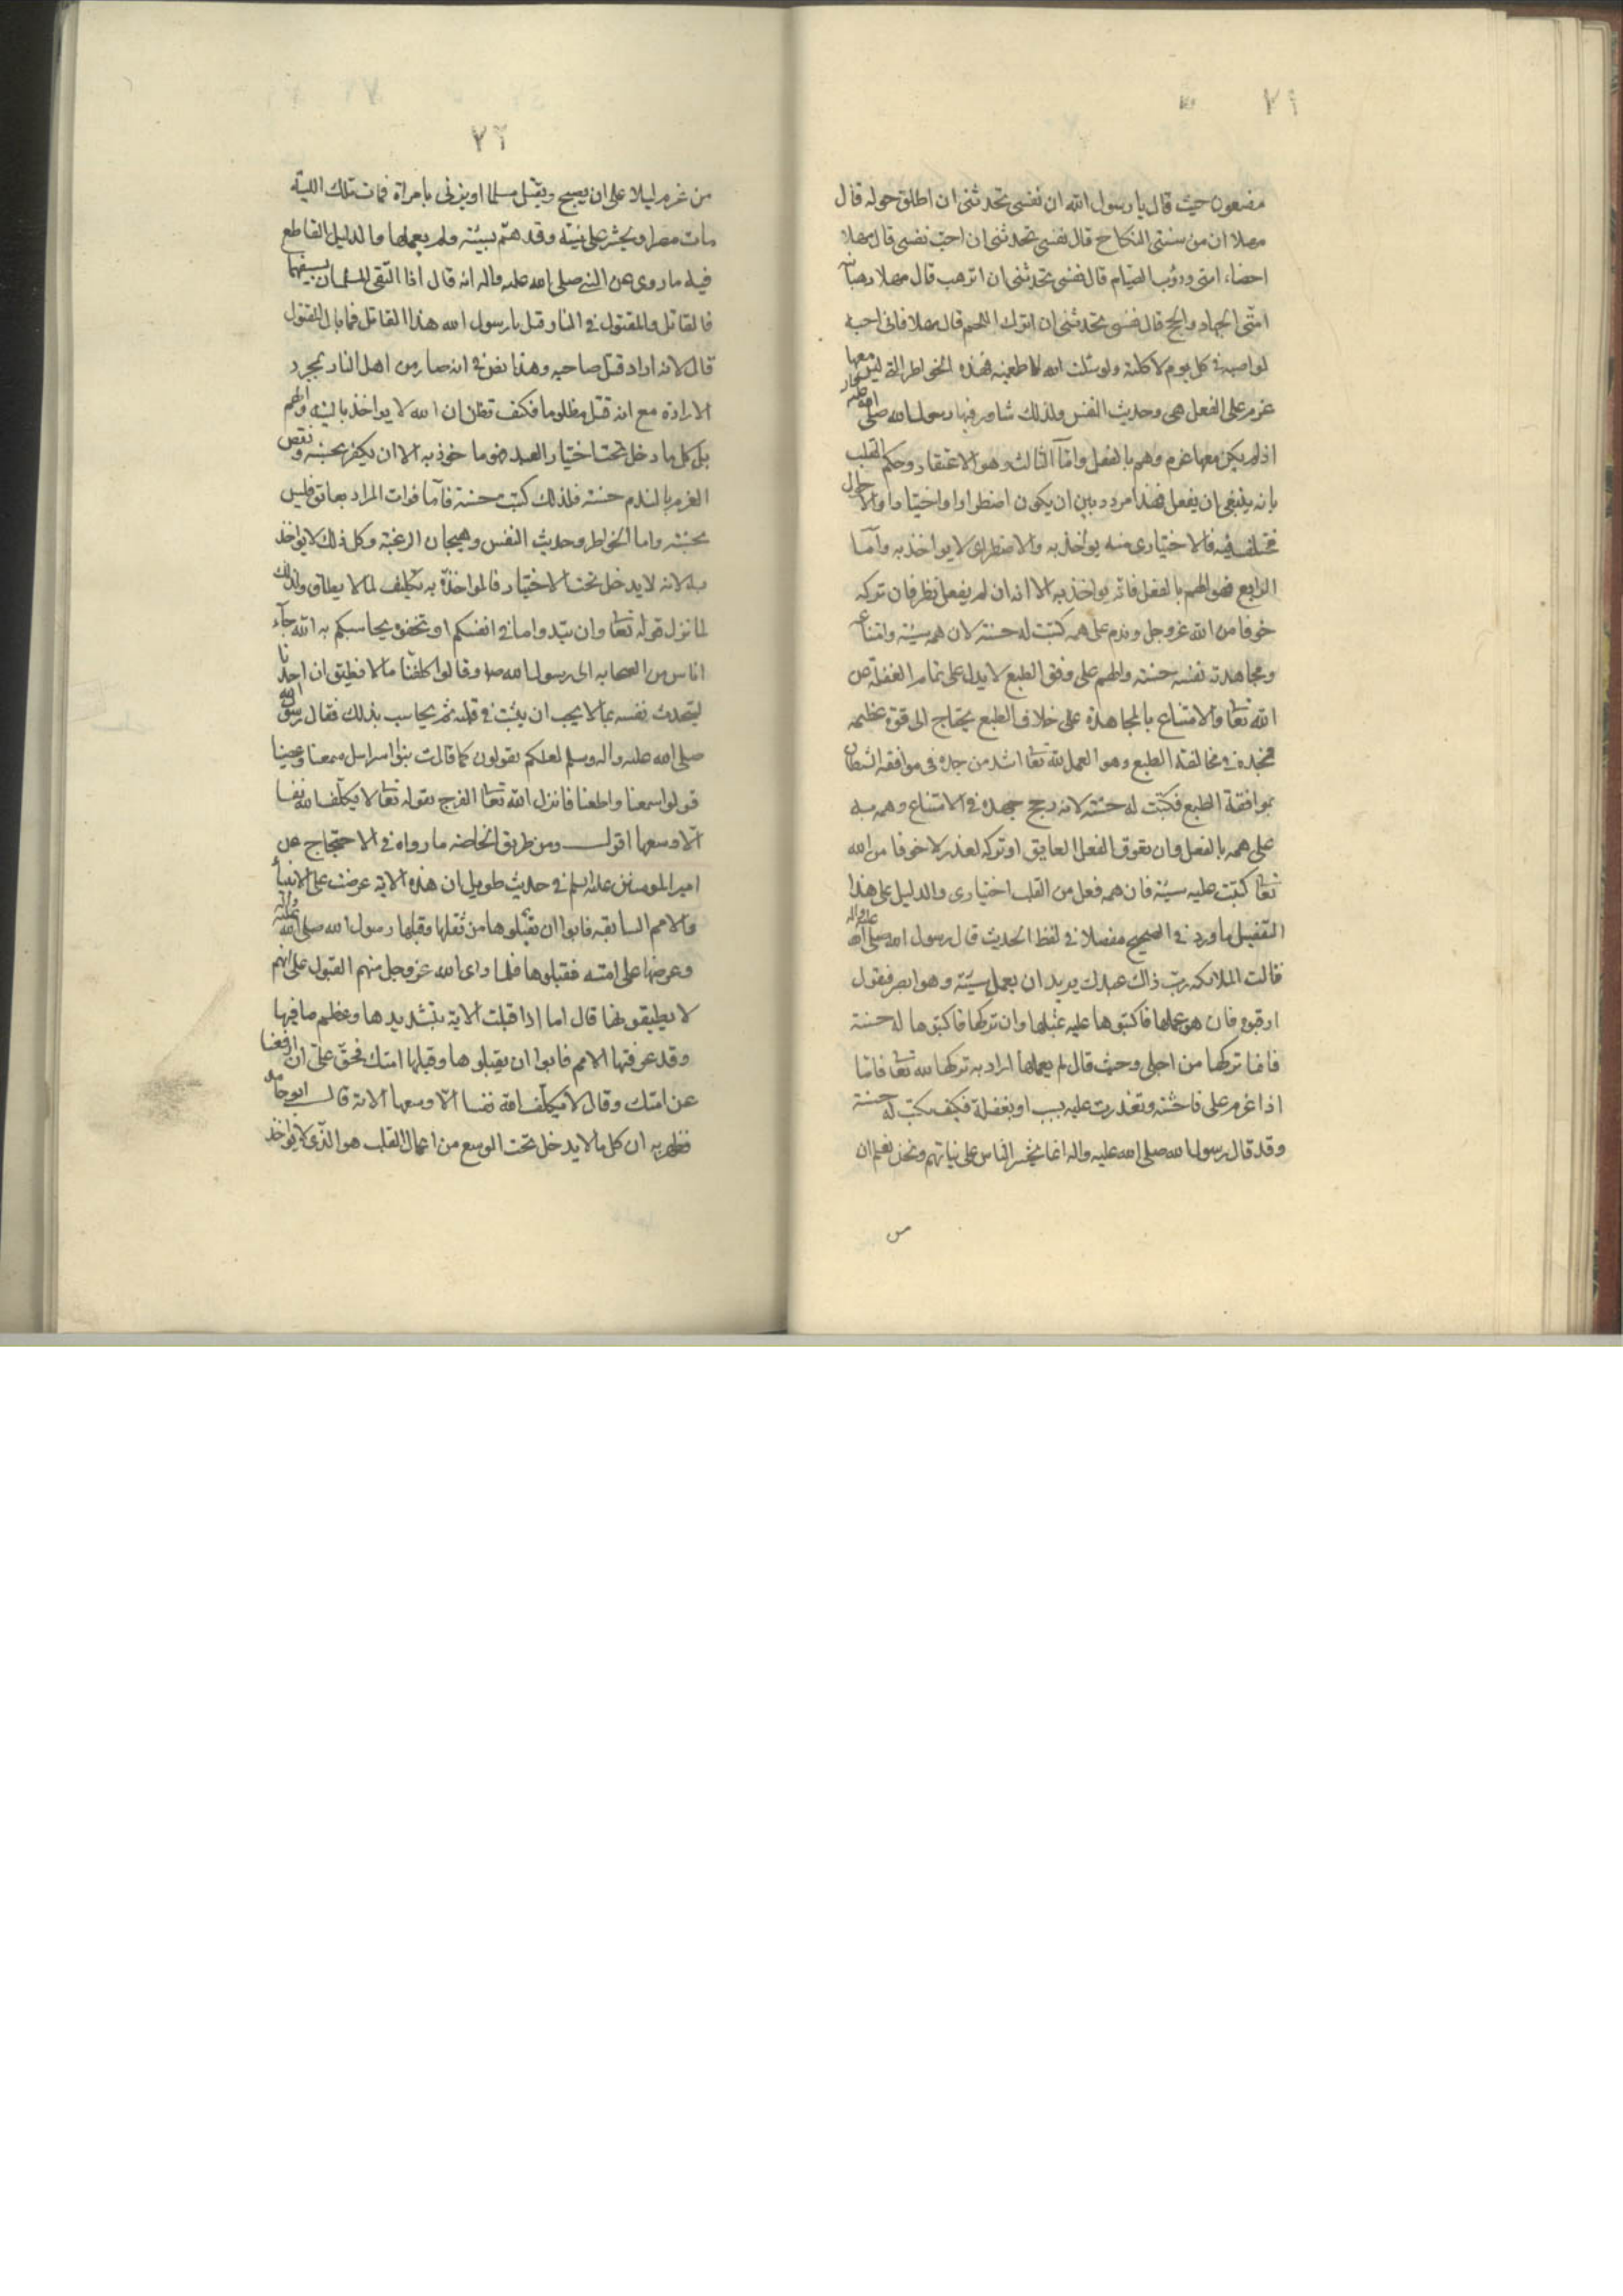 ٧١
مضعون حيث قال يا رسول الله ان نفسى تحدثنى ان اطلق خوله قال
مهلا ان من سنتى النكاح قال نفسى تحدثنى ان اجبّ نفسى قال مهلا
اخصاء امتى ودؤب الصيام قال نفسى تحدثنى ان اترهب قال مهلا رهبانية
امتى الجهاد والحج قال نفسى تحدثنى ان اترك اللحم قال مهلا فانى احبه
لو اصبه فى كل يوم لاكلته ولو سئلت الله لاطعمنيه فهذه الخواطر التى ليس معها
عزم على الفعل هى وحديث النفس ولذلك شاور فيها رسول الله صلى الله عليه
اذ لم يكن معها عزم وهم بالفعل وامّا الثالث وهو الاعتقاد وحكم القلب
بانه ينبغى ان يفعل فهذا مردد بين ان يكون اضطرارا واختيارا والاحوال
تختلف فيه فالاختيارى منه يواخذ به والاضطرارى لا يواخذ به وامّا
الرابع فهو الهم بالفعل فانه يواخذ به الا انه ان لم يفعل نظر فان تركه
خوفا من الله عز وجل وندم على همه كتبت له حسنة لان همه سيئة وامتناعه
ومجاهدته نفسه حسنة والهم على وفق الطبع لا يدل على تمام الغفلة عن
الله تعا والامتناع بالمجاهدة على خلاف الطبع يحتاج الى قوة عظيمه
فجده فى مخالفة الطبع وهو العمل لله تعا اشد من جده فى موافقة الشيطان
بموافقة الطبع فكتبت له حسنة لانه رجح جهده فى الامتناع وهمه به
على همه بالفعل وان تعوق الفعل العايق او تركه لعذر لا خوفا من الله
تعا كتبت عليه سيئة فان همه فعل من القلب اختيارى والدليل على هذا
التفصيل ما ورد فى الصحيح مفصلا فى لفظ الحديث قال رسول الله صلى الله عليه واله
قالت الملائكه ربّ ذاك عبدك يريد ان يعمل سيئة وهو ابصر فيقول
ارقبوه فان هو عملها فاكتبوها عليه بمثلها وان تركها فاكتبوها له حسنة
فانما تركها من اجلى وحيث قال لم يعملها اراد به تركها لله تعا فامّا
اذا عزم على فاحشة وتعذرت عليه بسبب او بغفلة فكيف يكتب له حسنة
وقد قال رسول الله صلى الله عليه واله انما يحشر الناس على نياتهم ونحن نعلم ان
من
٧٢
من عزم ليلا على ان يصبح ويقتل مسلما او يزنى بامراة فمات تلك الليلة
مات مصرا ويحشر على نيته وقد همّ بسيئة ولم يعملها والدليل القاطع
فيه ما روى عن النبى صلى الله عليه واله انه قال اذا التقى المسلمان بسيفهما
فالقاتل والمقتول فى النار قيل يا رسول الله هذا القاتل فما بال المقتول
قال لانه اراد قتل صاحبه وهذا نص فى انه صار من اهل النار بمجرد
الارادة مع انه قتل مظلوما فكيف تظن ان الله لا يواخذ بالنية والهم
بل كل ما دخل تحت اختيار العبد فهو ماخوذ به الا ان يكفر بحسنة ونقض
العزم بالندم حسنة فلذلك كتبت حسنة فامّا فوات المراد بعايق فليس
بحسنة واما الخواطر وحديث النفس وهيجان الرغبة وكل ذلك لا يواخذ
به لانه لا يدخل تحت الاختيار فالمواخذة به تكليف لما لا يطاق ولذلك
لما نزل قوله تعا وان تبدوا ما فى انفسكم او تخفوه يحاسبكم به الله جاء
اناس من الصحابه الى رسول الله صلى وقالوا كلفنا ما لا نطيق ان احدنا
ليتحدث نفسه بما لا يحب ان يثبت فى قلبه ثم يحاسب بذلك فقال رسول الله
صلى الله عليه واله وسلم لعلكم تقولون كما قالت بنو اسرايل سمعنا وعصينا
قولوا سمعنا واطعنا فانزل الله تعا الفرج بقوله تعا لا يكلف الله نفسا
الّا وسعها اقول ومن طريق الخاصه ما رواه فى الاحتجاج عن
امير المومنين عليه السلم فى حديث طويل ان هذه الاية عرضت على الانبياء
والامم السابقه فابوا ان يقبلوها من ثقلها وقبلها رسول الله صلى الله عليه واله
وعرضها على امته فقبلوها فلما راى الله عز وجل منهم القبول على انهم
لا يطيقونها قال اما اذا قبلت الاية بتشديدها وعظم ما فيها
وقد عرضتها الامم فابوا ان يقبلوها وقبلها امتك فحقّ علىّ ان ارفعها
عن امتك وقال لا يكلف الله نفسا الّا وسعها الاية قال ابو حامد
فظهر به ان كل ما لا يدخل تحت الوسع من اعمال القلب هو الذى لا يواخذ